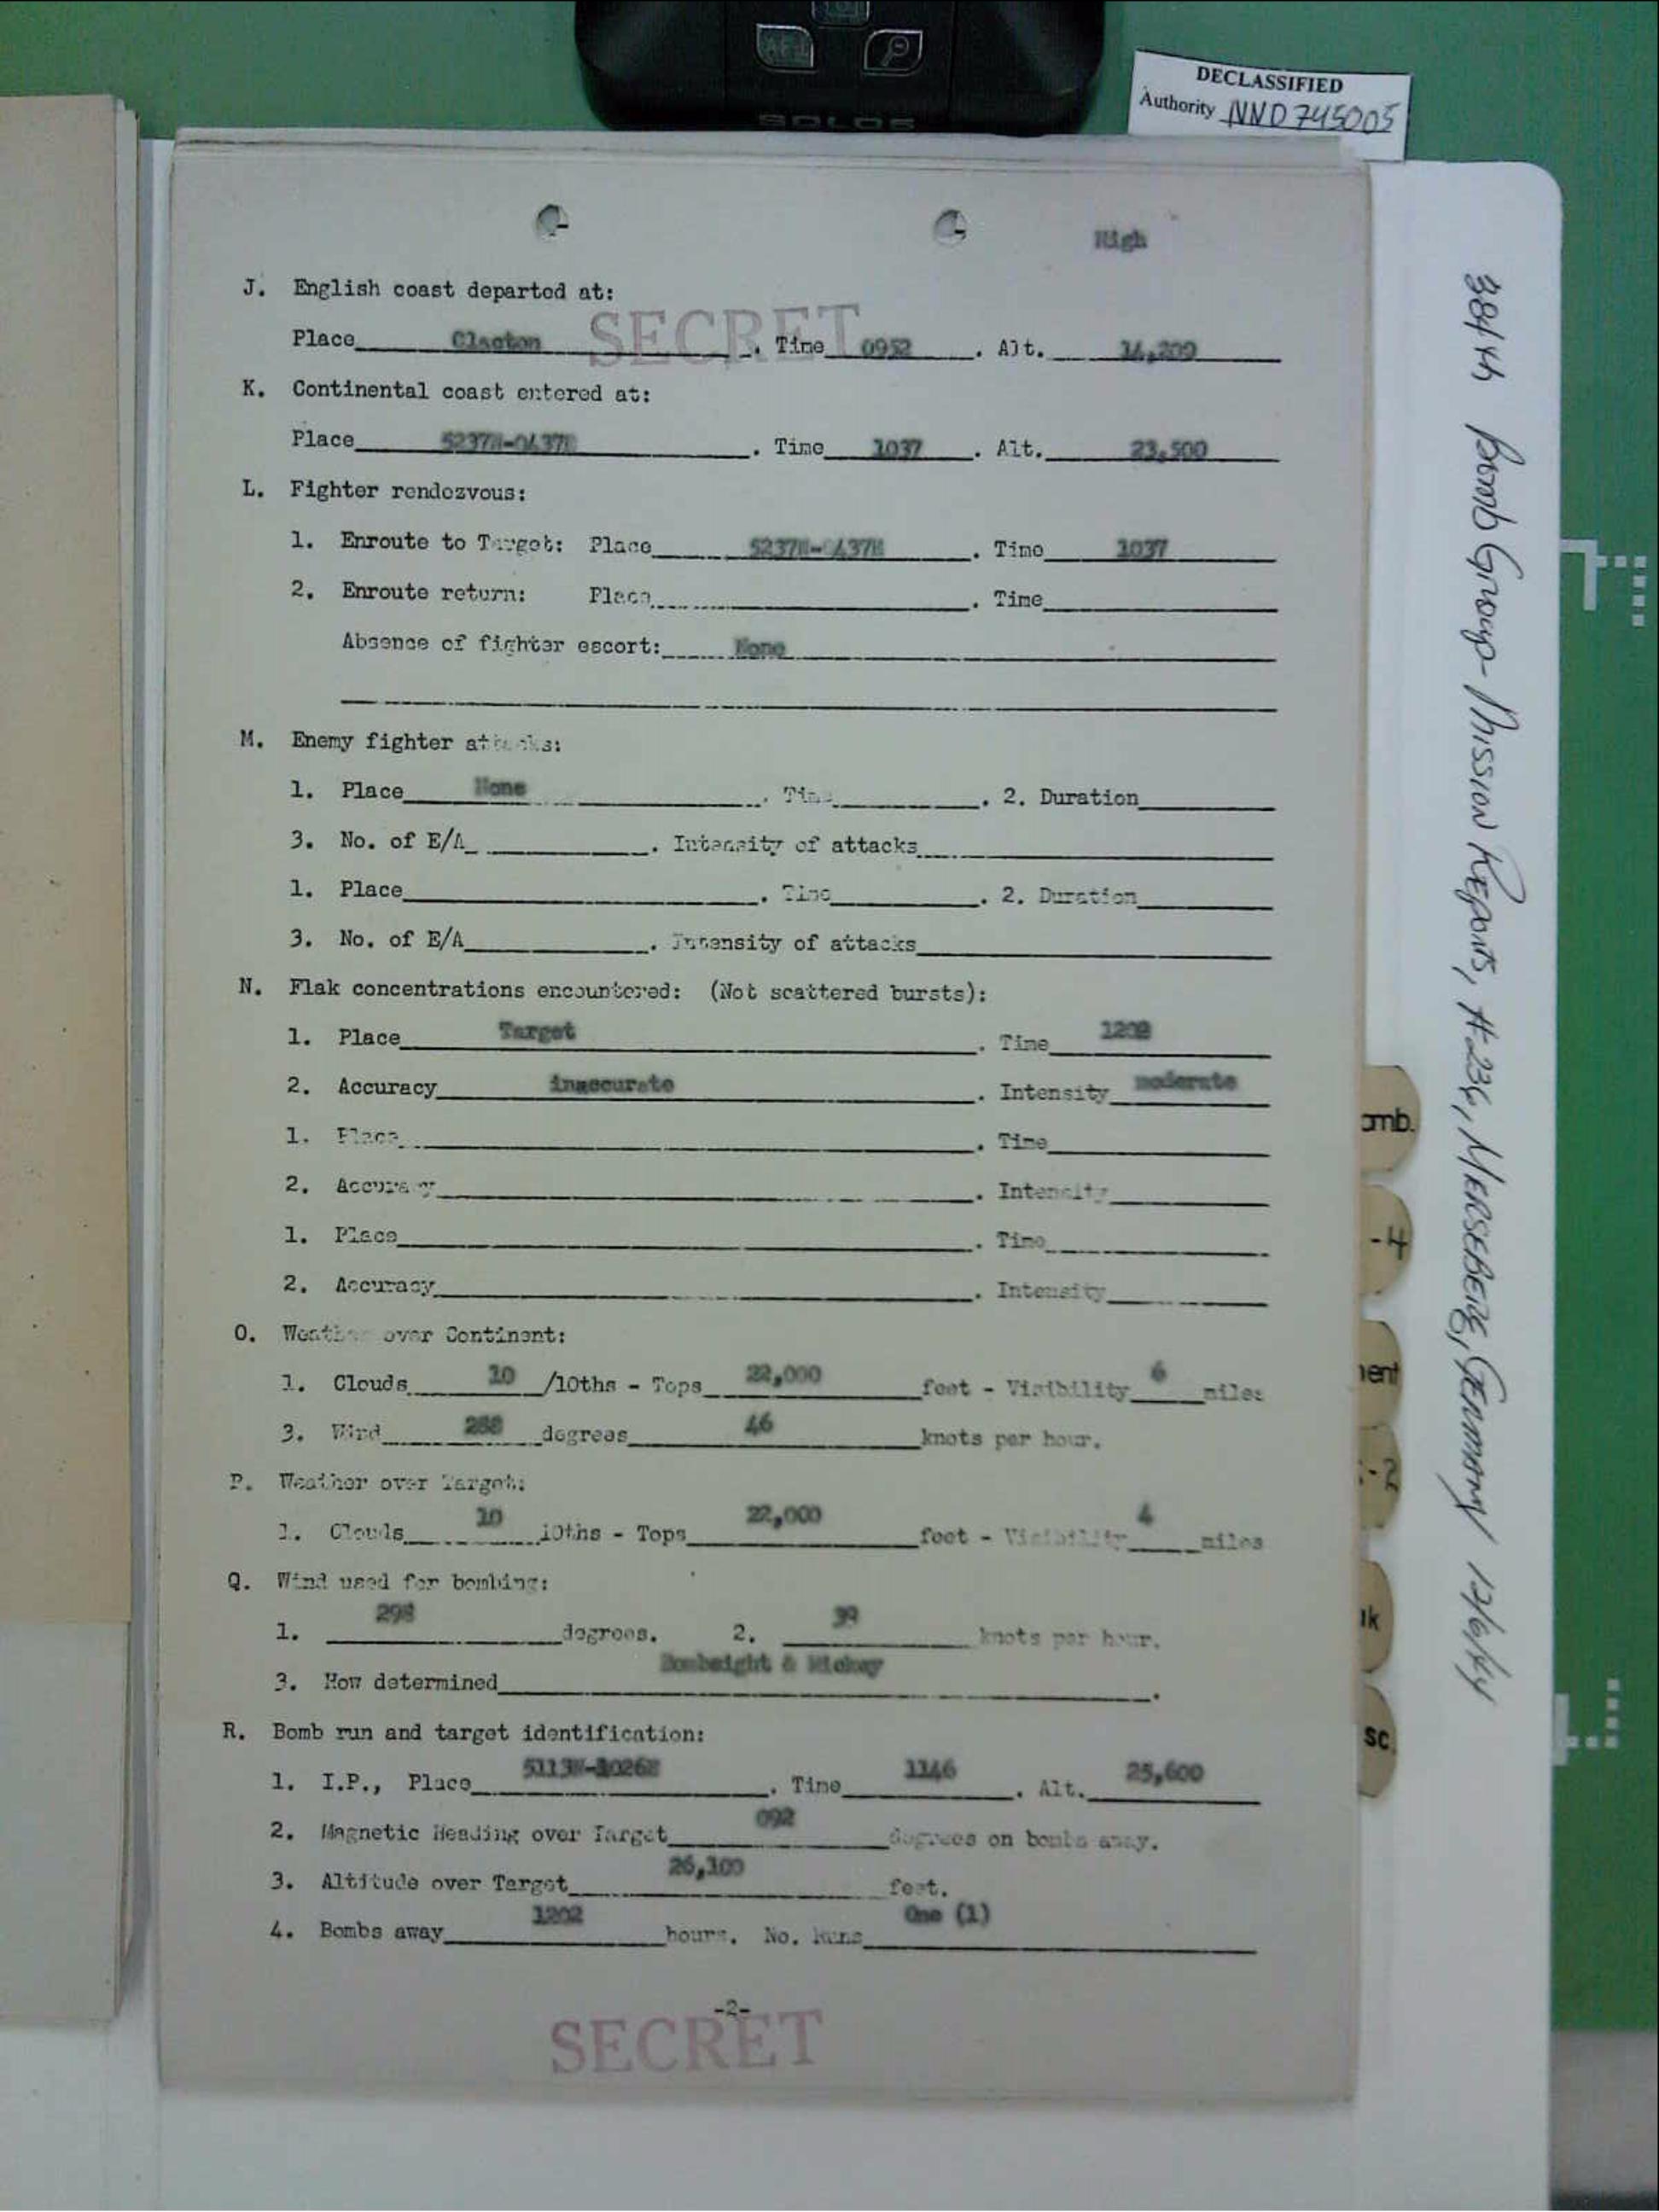 DECLASSIFIED
Authority NND 745005
High
J. English coast departed at:
SECRET
Place Clacton . Time 0952 . Alt. 14,200
K. Continental coast entered at:
Place 5237N-0437E . Time 1037 . Alt. 23,500
L. Fighter rendezvous:
1. Enroute to Target: Place 5237N-0437E . Time 1037
2. Enroute return: Place . Time
Absence of fighter escort: None
M. Enemy fighter attacks:
1. Place None . Time . 2. Duration
3. No. of E/A . Intensity of attacks
1. Place . Time . 2. Duration
3. No. of E/A . Intensity of attacks
N. Flak concentrations encountered: (Not scattered bursts):
1. Place Target . Time
2. Accuracy inaccurate . Intensity moderate
1. Place . Time
2. Accuracy . Intensity
1. Place . Time
2. Accuracy . Intensity
O. Weather over Continent:
1. Clouds 10 /10ths - Tops 22,000 feet - Visibility 6 miles
3. Wind degrees 46 knots per hour.
P. Weather over Target:
1. Clouds 10 10ths - Tops 22,000 feet - Visibility 4 miles
Q. Wind used for bombing:
1. 298 degrees. 2. 39 knots per hour.
3. How determined Bombsight & Mickey .
R. Bomb run and target identification:
1. I.P., Place 5113N-1026E . Time 1146 . Alt. 25,600
2. Magnetic Heading over Target 092 degrees on bombs away.
3. Altitude over Target 26,100 feet.
4. Bombs away 1202 hours. No. Runs One (1)
-2-
SECRET
384th Bomb Group - Mission Reports, #234, Merseberg, Germany 12/6/44
omb.
-4
ent
-2
ak
sc.